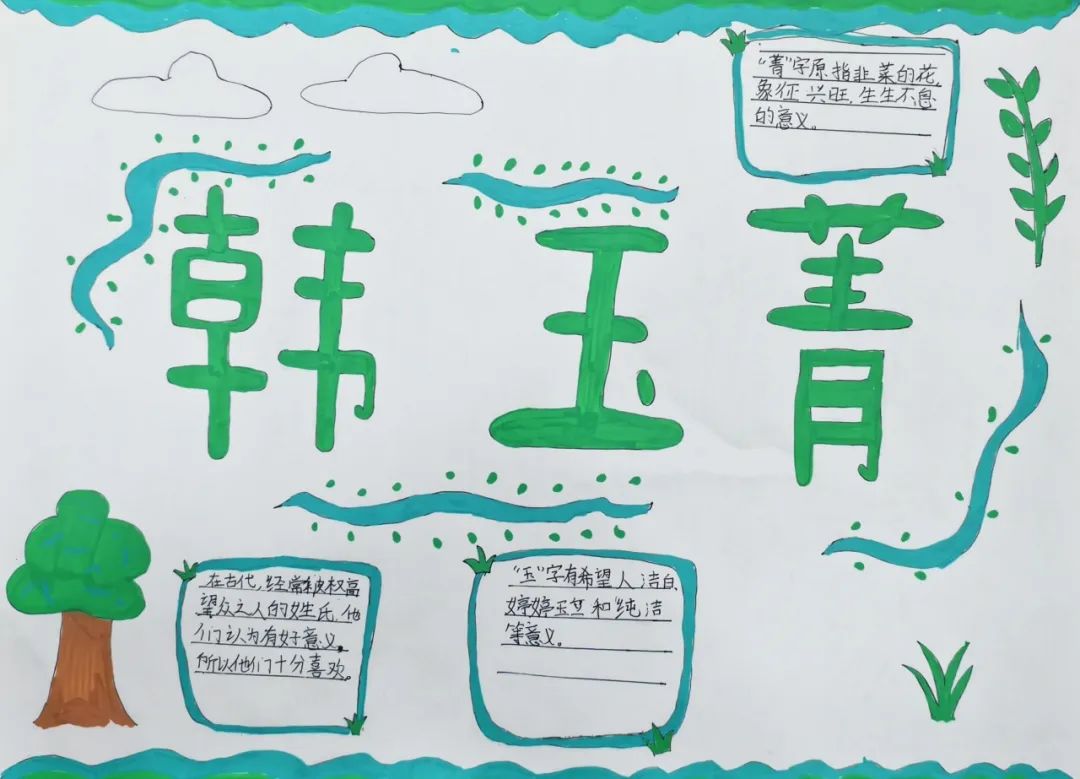 "菁"字原指韭菜的花,
象征 兴旺,生生不息
的意义。
韩玉菁
在古代,经常被权高
望众之人的姓氏,他
们认为有好意义,
所以他们十分喜欢。
"玉"字有希望人洁白、
婷婷玉立 和纯洁
等意义。